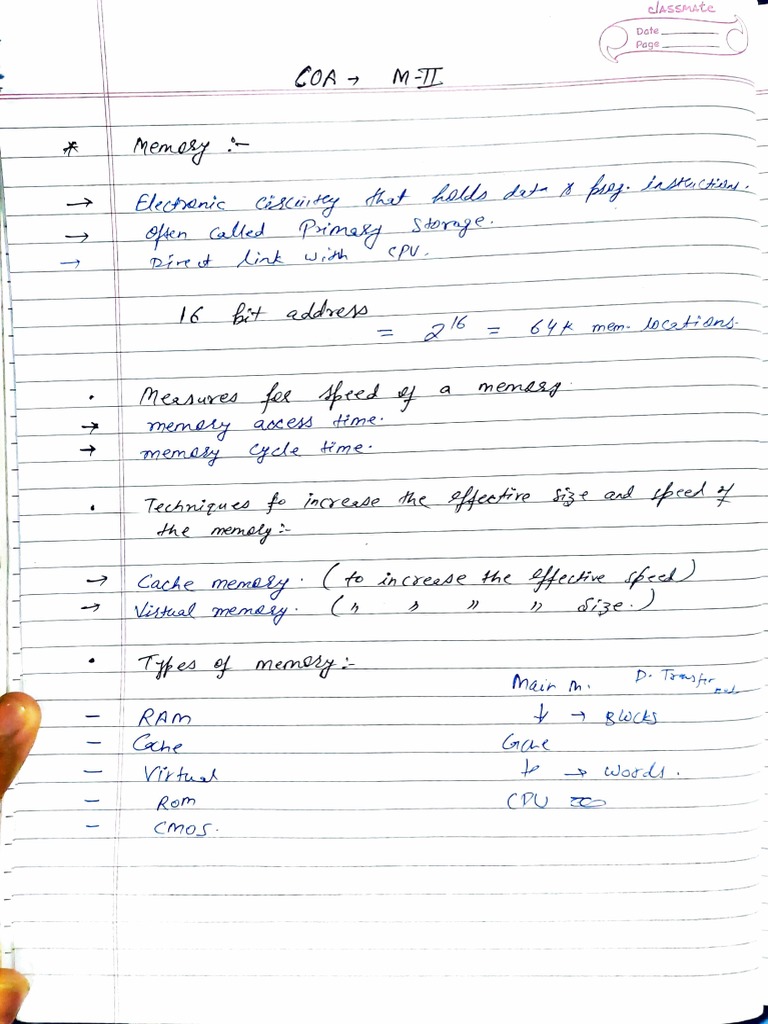 classmate
Date
Page
COA → M-II
* Memory :-
→ Electronic circuitry that holds data & prog. instructions.
→ often called Primary Storage.
→ Direct link with CPU.
16 bit address
= 2^16 = 64K mem. locations.
• Measures for speed of a memory.
→ memory access time.
→ memory cycle time.
• Techniques to increase the effective size and speed of
the memory:-
→ Cache memory. (to increase the effective speed)
→ Virtual memory. (" " " " size.)
• Types of memory:-
Main m. D. Transfer
- RAM ↓ → Blocks
- Cache Cache
- Virtual ↓ → words.
- Rom CPU
- CMOS.